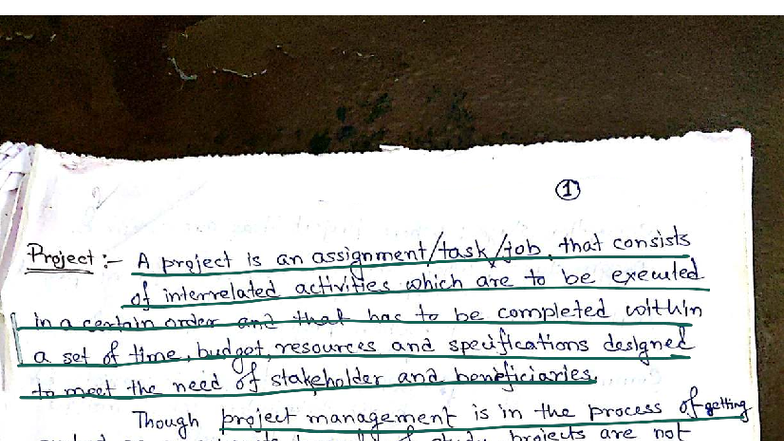 ①
Project :- A project is an assignment/task/job, that consists
of interrelated activities which are to be executed
in a certain order and that has to be completed within
a set of time, budget, resources and specifications designed
to meet the need of stakeholder and beneficiaries.
Though project management is in the process of getting
of study, projects are not